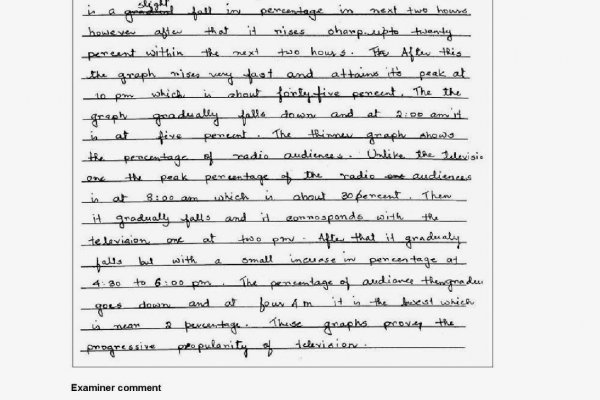 slight
is a gradual fall in percentage in next two hours
however after that it rises sharp upto twenty
percent within the next two hours. The After this
the graph rises very fast and attains its peak at
10 pm which is about forty-five percent. The the
graph gradually falls down and at 2:00 am it
is at five percent. The thinner graph shows
the percentage of radio audiences. Unlike the televisio
one the peak percentage of the radio one audiences
is at 8:00 am which is about 30 percent. Then
it gradually falls and it corrosponds with the
television one at two pm. After that it gradualy
falls but with a small increase in percentage at
4:30 to 6:00 pm. The percentage of audiance then gradu
goes down and at four A m it is the lowest which
is near 2 percentage. These graphs proves the
progressive popularity of television.
Examiner comment